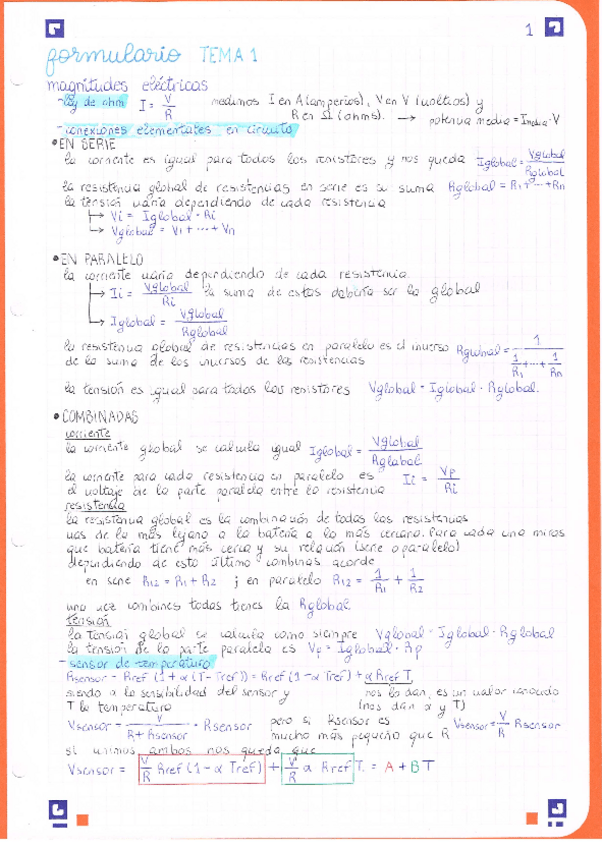 1
formulario TEMA 1
magnitudes eléctricas
- ley de ohm I = V/R medimos I en A (amperios), V en V (voltios) y
R en Ω (ohms). → potencia media = Imedia · V
- conexiones elementales en circuito
• EN SERIE
la corriente es igual para todos los resistores y nos queda Iglobal = Vglobal/Rglobal
la resistencia global de resistencias en serie es su suma Rglobal = R1 + ··· + Rn
la tensión varía dependiendo de cada resistencia
↳ Vi = Iglobal · Ri
↳ Vglobal = V1 + ··· + Vn
• EN PARALELO
la corriente varia dependiendo de cada resistencia.
↳ Ii = Vglobal/Ri la suma de estas debería ser la global
↳ Iglobal = Vglobal/Rglobal
la resistencia global de resistencias en paralelo es el inverso Rglobal = 1/(1/R1 + ··· + 1/Rn)
de la suma de los inversos de las resistencias
la tensión es igual para todos los resistores Vglobal = Iglobal · Rglobal.
• COMBINADAS
corriente
la corriente global se calcula igual Iglobal = Vglobal/Rglobal
la corriente para cada resistencia en paralelo es Ii = Vp/Ri
el voltaje de la parte paralela entre la resistencia
resistencia
la resistencia global es la combinación de todas las resistencias
vas de la más lejana a la batería a la más cercana. Para cada una miras
que batería tiene más cerca y su relación (serie o paralelo)
dependiendo de esto último combinas acorde
en serie R12 = R1 + R2 ; en paralelo R12 = 1/R1 + 1/R2
una vez combines todas tienes la Rglobal.
tensión
la tensión global se calcula como siempre Vglobal = Iglobal · Rglobal
la tensión de la parte paralela es Vp = Iglobal · Rp
- sensor de temperatura
Rsensor = Rref (1 + α (T - Tref)) = Rref (1 - α Tref) + α Rref T,
siendo α la sensibilidad del sensor y nos lo dan, es un valor conocido
T la temperatura (nos dan α y T)
Vsensor = V/(R + Rsensor) · Rsensor pero si Rsensor es mucho más pequeño que R Vsensor = V/R Rsensor
si unimos ambos nos queda que
Vsensor = V/R Rref (1 - α Tref) + V/R α Rref T. = A + B T